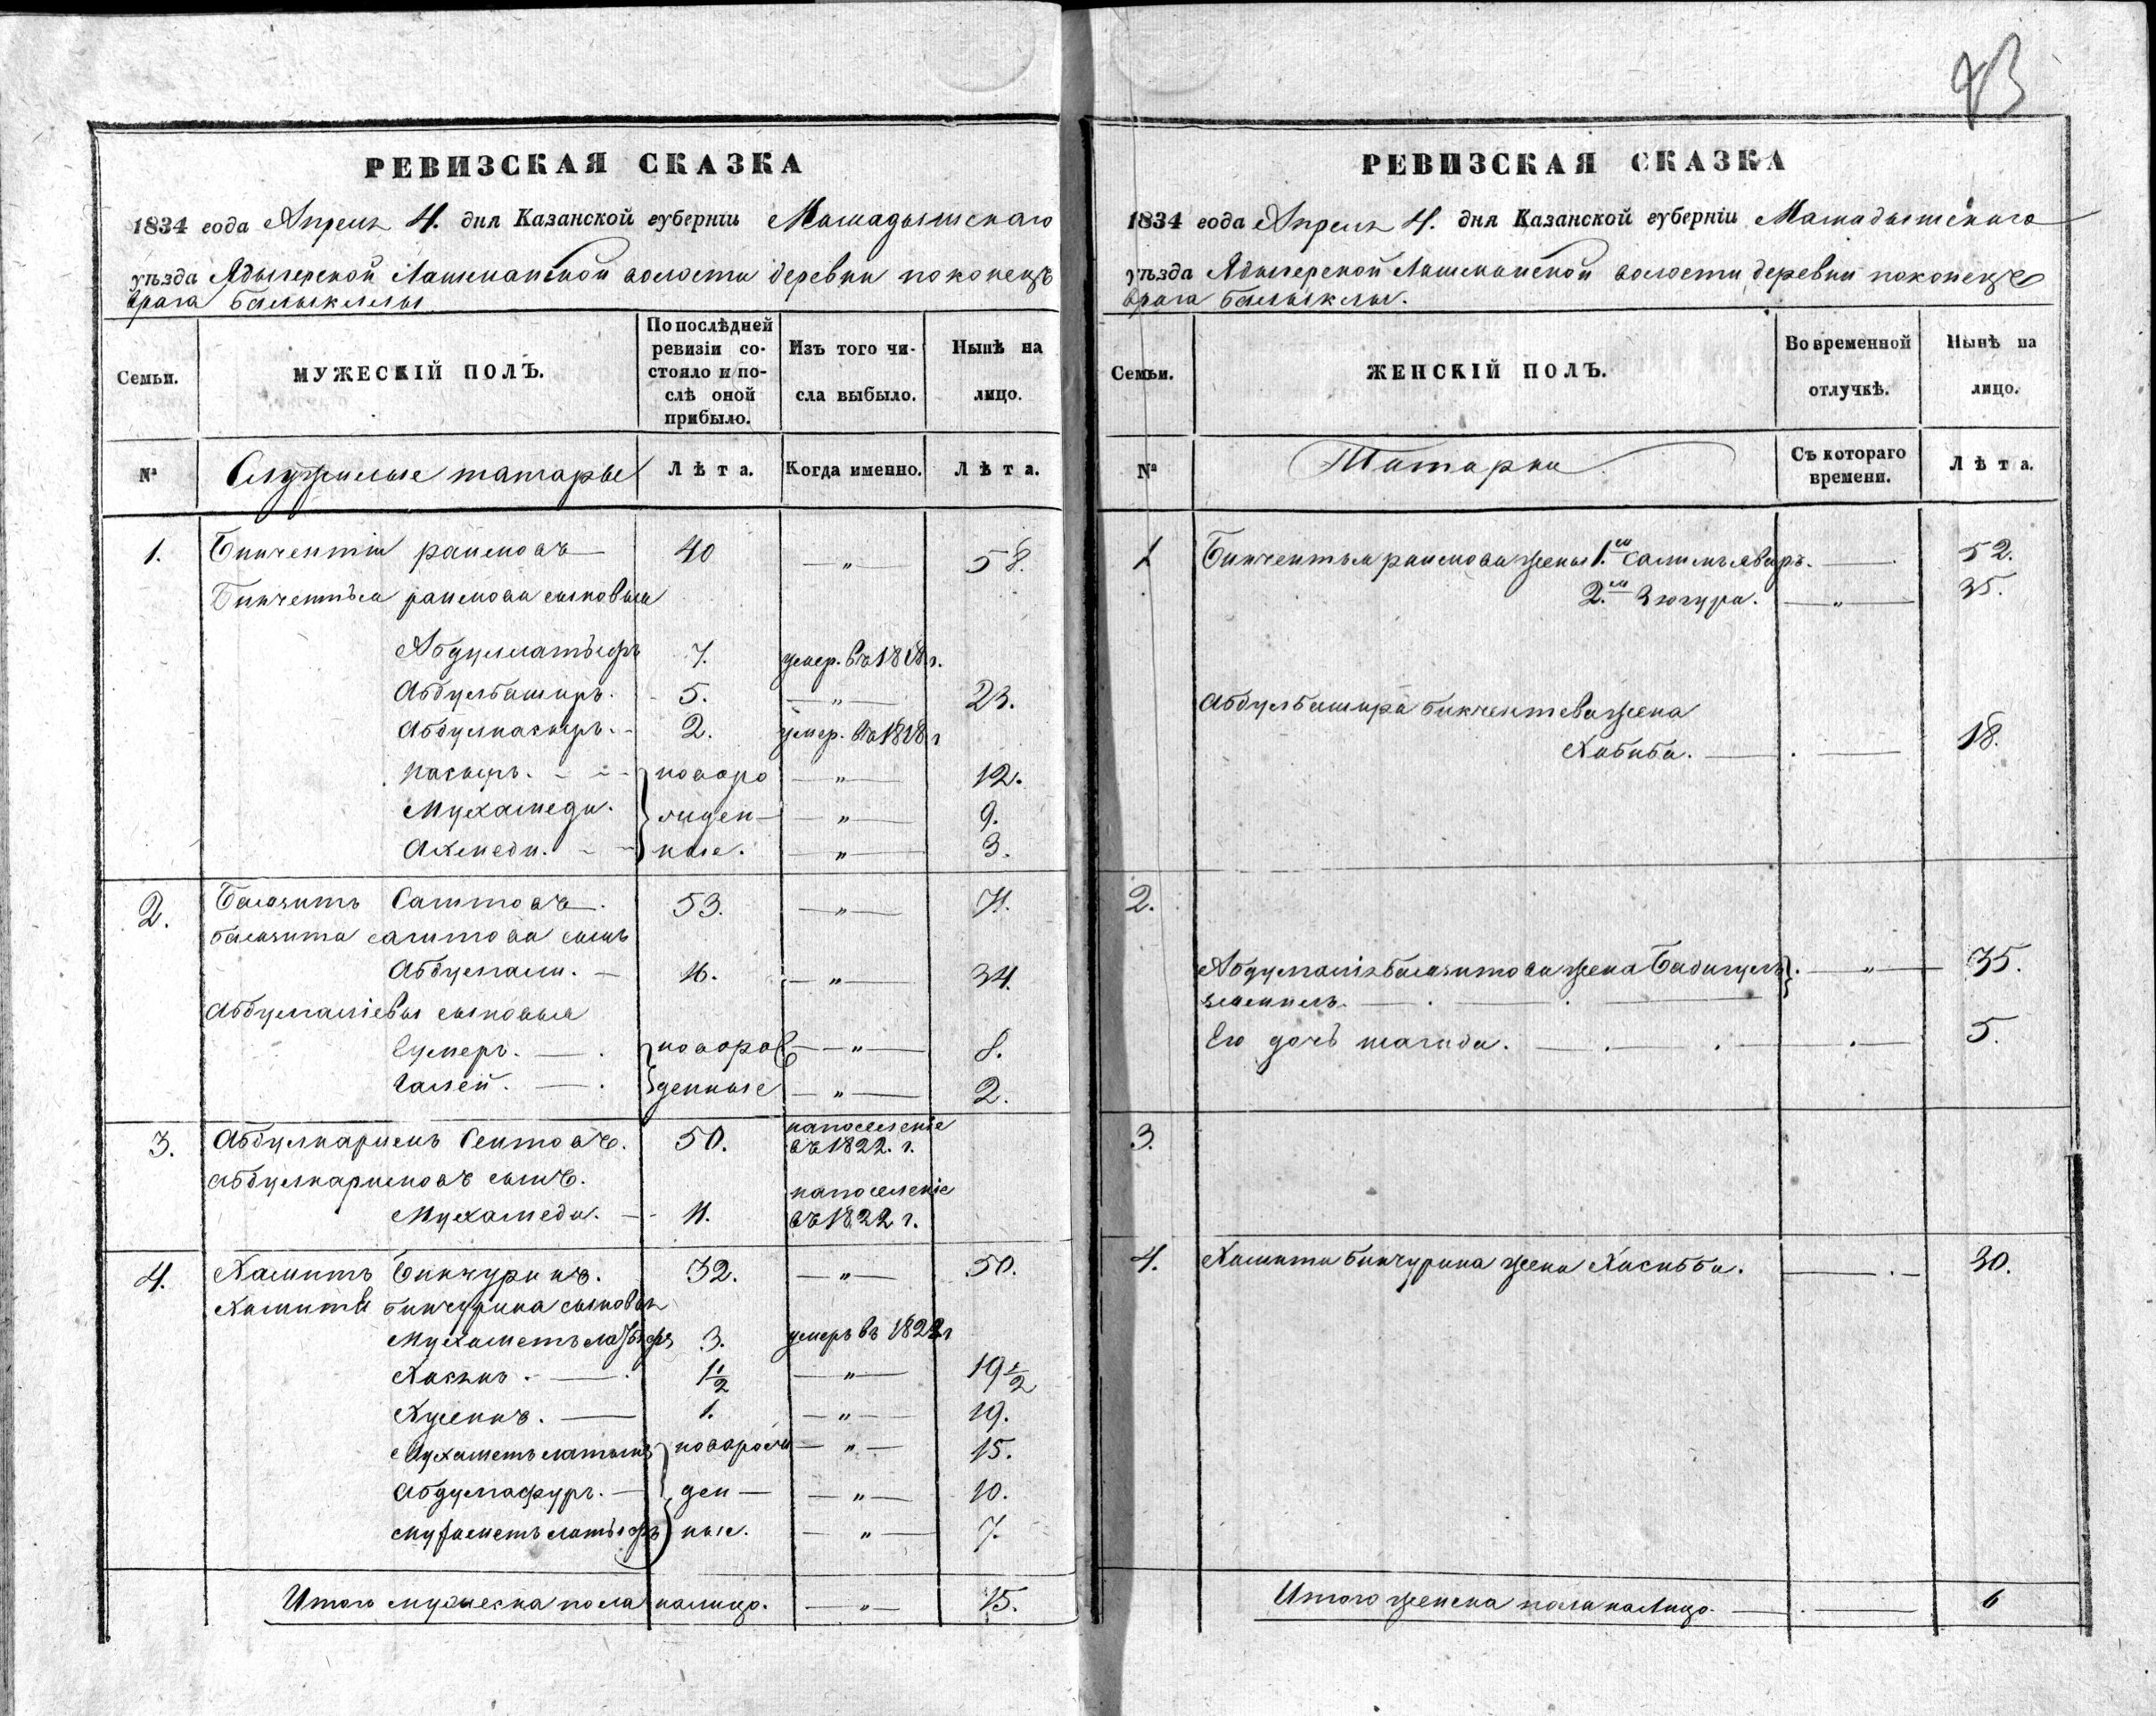 83
РЕВИЗСКАЯ СКАЗКА
1834 года Апреля 4. дня Казанской губерніи Мамадышскаго
уѣзда Адыгерской Лашманской волости деревни поконецъ
врага Балыклы
Семьи.
МУЖЕСКІЙ ПОЛЪ.
По послѣдней
ревизіи со-
стояло и по-
слѣ оной
прибыло.
Изъ того чи-
сла выбыло.
Нынѣ на
лицо.
№ Служилые татары Лѣта. Когда именно. Лѣта.
1. Бикчентій раимовъ 40 — " — 58.
Бикчентья раимова сыновья
Абдуллатыфъ 7. умер. въ 1818 г.
Абдулбашыръ. 5. — " — 23.
Абдулнасыръ. 2. умер. въ 1818 г
насыръ. новоро — " — 12.
Мухамеди. жден — " — 9.
Ахмеди. ные. — " — 3.
2. Баязитъ Саитовъ. 53. — " — 71.
баязита саитова сынъ
Абдулгали. — 16. — " — 34.
Абдулгаліевы сыновья
Гумеръ. — новорож — " — 8.
Галей. — денные — " — 2.
3. Абдулкаримъ Сеитовъ. 50. напоселеніе
въ 1822. г.
абдулкаримовъ сынъ.
напоселеніе
Мухамеди. — 11. въ 1822 г.
4. Хамитъ Бикчуринъ. 32. — " — 50.
Хамита бикчурина сыновья
3. умеръ въ 182 г
Хасянъ. — 1 1/2 — " — 19 1/2
Хусеинъ. — 1. — " — 19.
новорож — " — 15.
Абдулгафуръ. — ден — — " — 10.
Мухаметълатыфъ ные. — " — 7.
Итого мужеска пола налицо. — " — 15.
РЕВИЗСКАЯ СКАЗКА
1834 года Апреля 4. дня Казанской губерніи Мамадышскаго
уѣзда Адыгерской Лашманской волости, деревни поконецъ
врага Балыклы.
Семьи.
ЖЕНСКІЙ ПОЛЪ.
Во временной
отлучкѣ.
Нынѣ на
лицо.
№ Татарки Съ котораго
времени. Лѣта.
1 Бикчентья раимова жены 1.я — 52.
2.я Зюгура. — " — 35.
Абдулбашыра бикчентева жена
Хабиба. — 18.
2.
Абдулгалія баязитова жена — " — 35.
Его дочь — 5.
3.
4. Хамита Бикчурина жена Хасибба. — 30.
Итого женска пола налицо. — 6